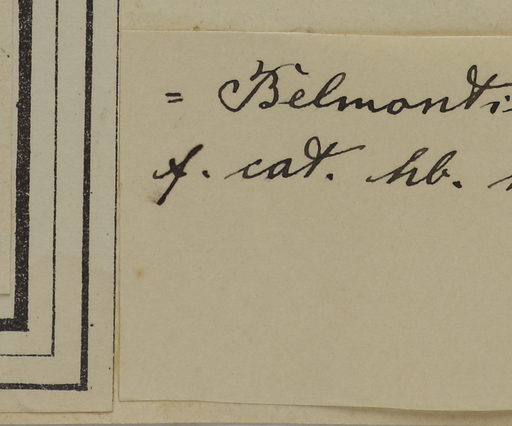 = Belmonti
f. cat. hb.